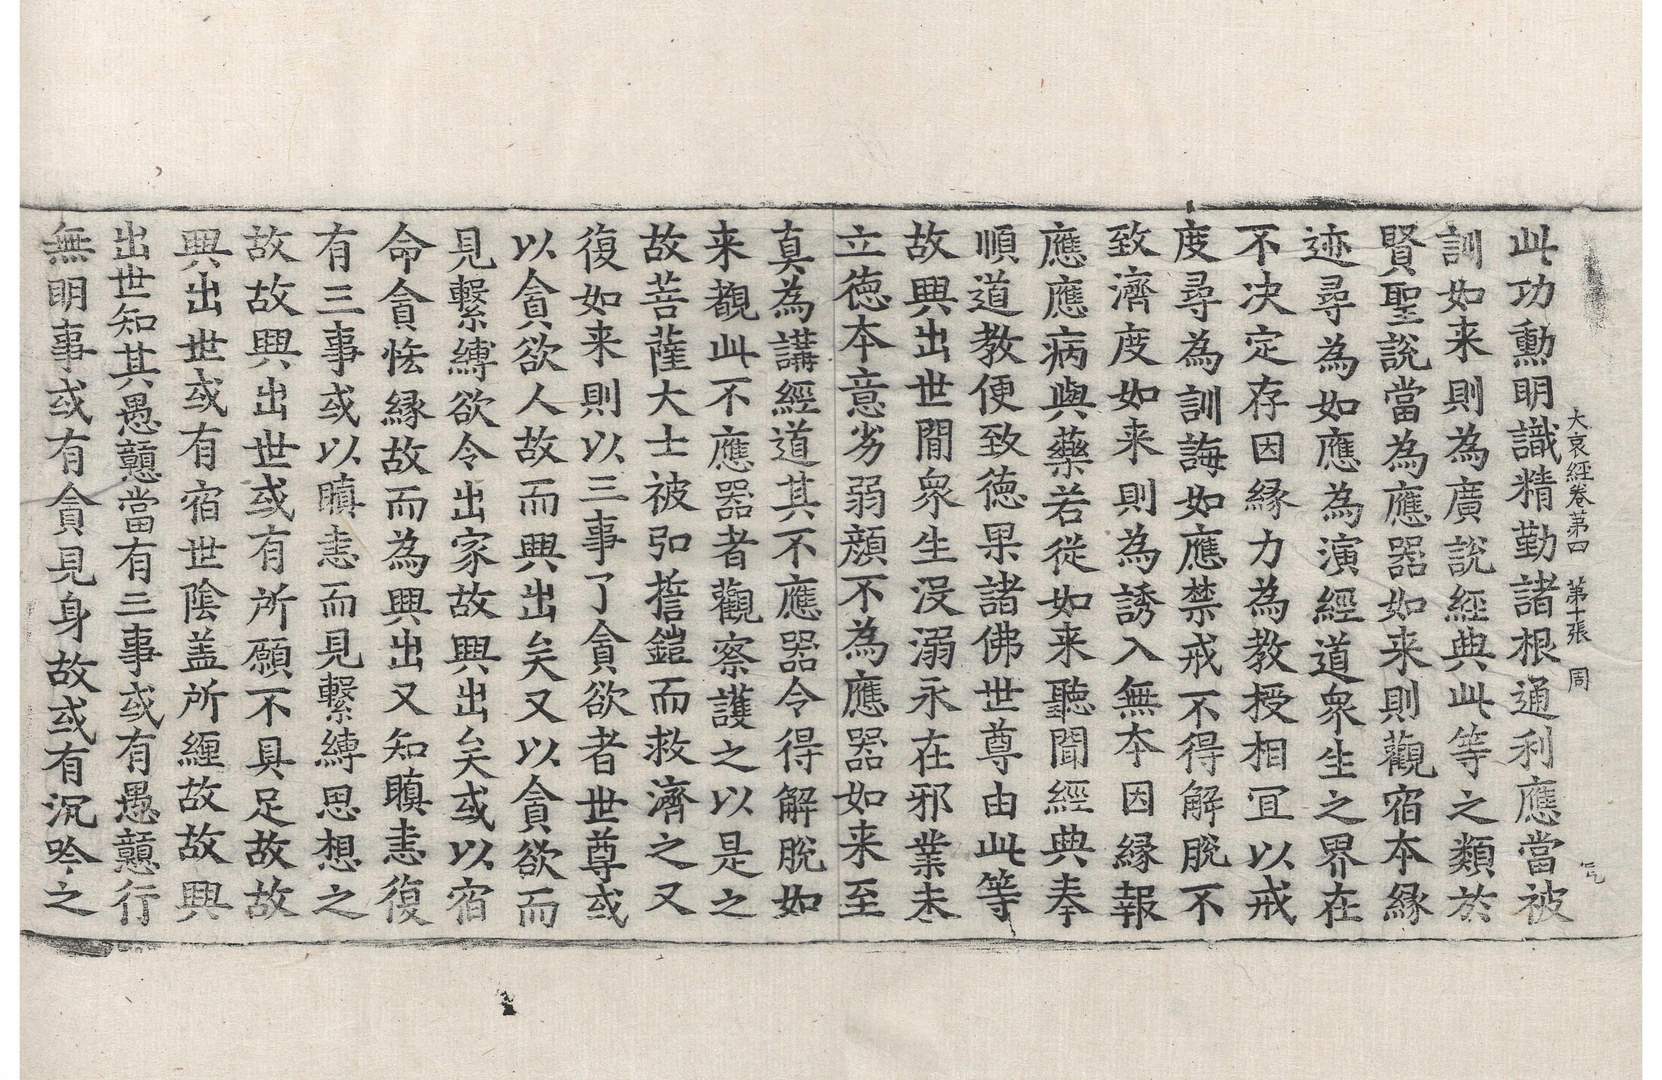 大哀經卷第四　第十張　周
此功勳明識精勤諸根通利應當被
訓如来則為廣說經典此等之類於
賢聖說當為應器如来則觀宿本縁
迹尋為如應為演經道衆生之界在
不决定存因縁力為教授相冝以戒
度尋為訓誨如應禁戒不得解脫不
致濟度如来則為誘入無本因縁報
應應病與藥若從如来聽聞經典奉
順道教便致德果諸佛世尊由此等
故興出世間衆生沒溺永在邪業未
立德本意劣弱顏不為應器如来至
真為講經道其不應器令得解脫如
来觀此不應器者觀察護之以是之
故菩薩大士被弘擔鎧而救濟之又
復如来則以三事了貪欲者世尊或
以貪欲人故而興出矣又以貪欲而
見繫縛欲令出家故興出矣或以宿
命貪悋縁故而為興出又知瞋恚復
有三事或以瞋恚而見繫縛思想之
故故興出世或有所願不具足故故
興出世或有宿世陰盖所纏故故興
出世知其愚戇當有三事或有愚戇行
無明事或有貪見身故或有沉吟之